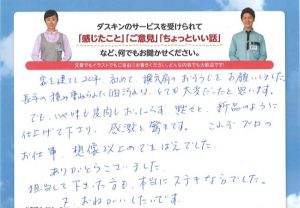 ダスキンのサービスを受けられて
「感じたこと」「ご意見」「ちょっといい話」
など、何でもお聞かせください。
文章でもイラストでもご自由にお書きください。どんな内容でも大歓迎です!
家を建てて20年 初めて、換気扇のおそうじをお願いしました。
長年の積み重ねられた油汚れは、とても大変だったと思います。
でも、いやな顔も見向もおっしゃらず 黙々と、新品のように
仕上げて下さり、感激と驚きです。これぞプロの
お仕事、想像以上のできばえでした。
ありがとうございました。
担当して下さった方も、本当にステキな方でした。
又、おねがいしたいです。